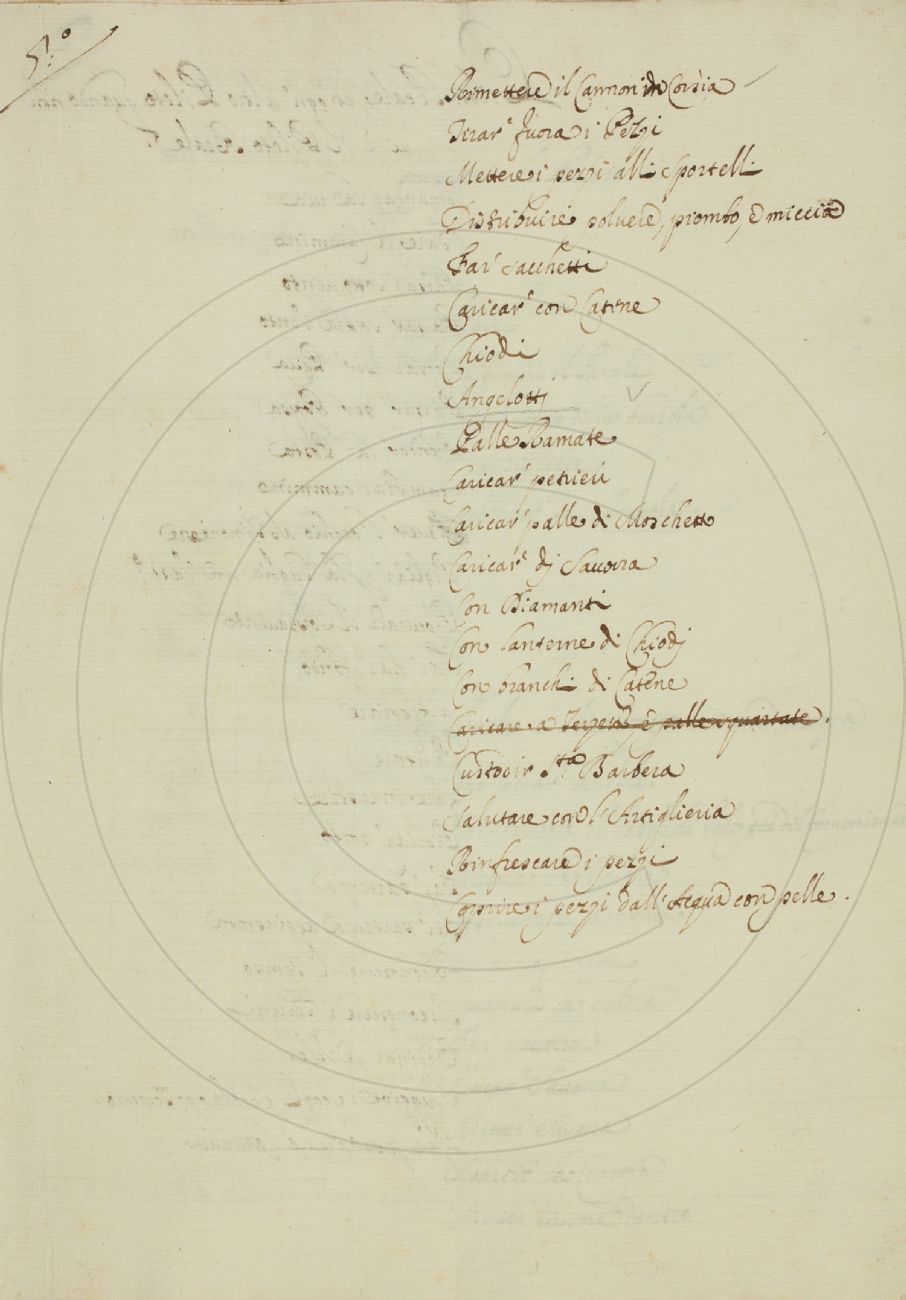 5.º
Rimettere il Cannon in Corsia
Tirar' fuora i Pezzi
Mettere i pezzi alli Sportelli
Distribuire polvere, piombo, e miccia
Far' sacchetti
Caricar' con Catene
Chiodi
Angelotti
Palle Ramate
Caricar' petrieri
Caricar' palle di Moschetto
Caricar' di Savorra
Con Diamanti
Con lanterne di Chiodj
Con branchi di Catene
Caricare a e palle squartate.
Custodir S.ta Barbera
Salutare con l'Artiglieria
Rinfrescare i pezzi
Coprire i pezzi dall'Acqua con pelle.